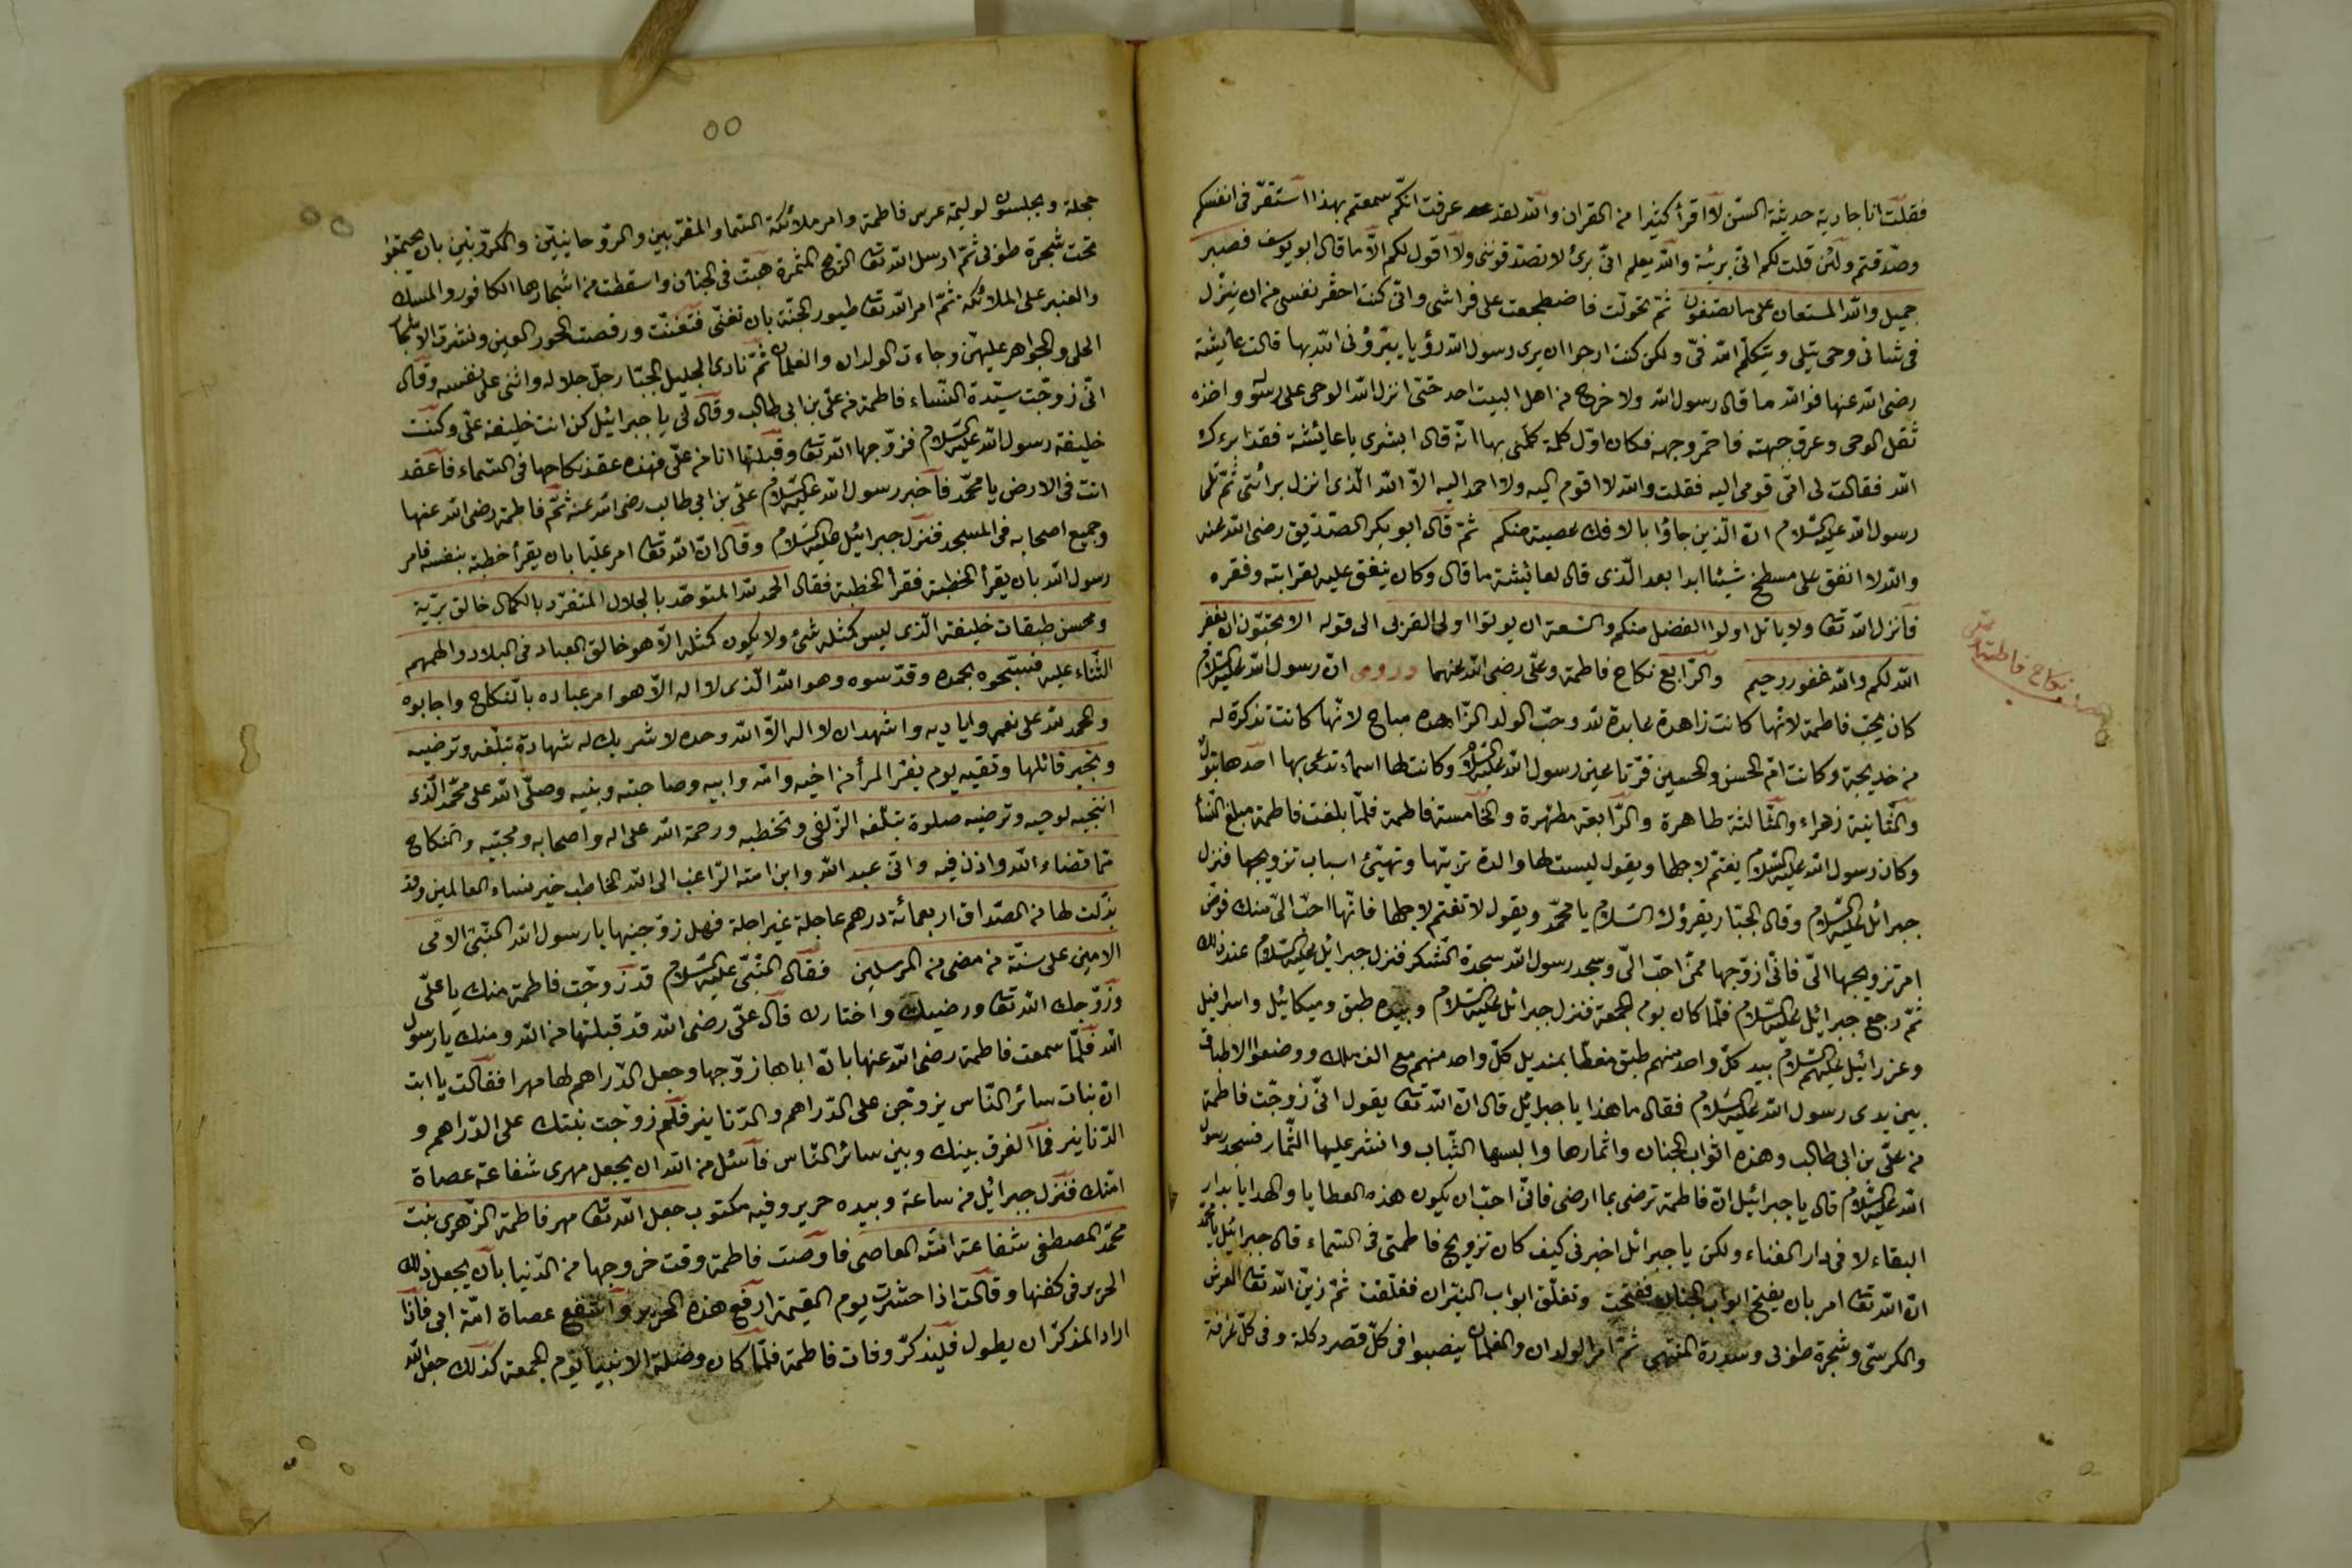 فقلت انا جارية حديثة السن لا اقرأ كثيرا من القران والله لقد عرفت انكم سمعتم بهذا استقر فى انفسكم
وصدقتم ولئن قلت لكم انى بريئة والله يعلم انى برئ لا تصدقوننى ولا اقول لكم الا ما قال ابو يوسف فصبر
جميل والله المستعان على ما تصفون ثم تحولت فاضطجعت على فراشى وانى كنت احقر نفسى من ان ينزل
فى شانى وحى يتلى ويتكلم الله فى ولكن كنت ارجوا ان يرى رسول الله رؤيا يبرؤنى الله بها قالت عايشة
رضى الله عنها فوالله ما قال رسول الله ولا خرج من اهل البيت احد حتى انزل الله الوحى على رسوله واخذه
ثقل الوحى وعرق جبهته فاحمر وجهه فكان اول كلمة كلمنى بها انه قال ابشرى يا عايشة فقد برءك
الله فقالت لى امى قومى اليه فقلت والله لا اقوم اليه ولا احمد اليه الا الله الذى انزل برائتى ثم تلى
رسول الله عليه السلام ان الذين جاؤا بالافك عصبة منكم ثم قال ابو بكر الصديق رضى الله عنه
والله لا انفق على مسطح شيئا ابدا بعد الذى قال لعائشة ما قال وكان ينفق عليه لقرابته وفقره
فانزل الله تعا ولا ياتل اولوا الفضل منكم والسعة ان يوتوا اولى القربى الى قوله الا تحبون ان يغفر
الله لكم والله غفور رحيم والرابع نكاح فاطمة وعلى رضى الله عنهما وروى ان رسول الله عليه السلام
نكاح فاطمة
كان يحب فاطمة لانها كانت زاهدة عابدة لله وحب الولد الزاهده مباح لانها كانت تذكرة له
من خديجة وكانت ام الحسن والحسين قرتا عين رسول الله عليه السلام وكانت لها اسماء تدعى بها احدها بتول
والثانية زهراء والثالثة طاهرة والرابعة مطهرة والخامسة فاطمة فلما بلغت فاطمة مبلغ النساء
وكان رسول الله عليه السلام يغتم لاجلها ويقول ليست لها والدة تربيها وتهيئ اسباب تزويجها فنزل
جبرائل عليه السلام وقال الجبار يقرؤك السلام يا محمد ويقول لا تغتم لاجلها فانها احب الى منك فوض
امر تزويجها الى فانى ازوجها ممن احب الى وسجد رسول الله سجدة الشكر فنزل جبرائل عليه السلام عند ذلك
ثم رجع جبرائل عليه السلام فلما كان يوم الجمعة فنزل جبرائل عليه السلام وبيده طبق وميكائيل واسرافيل
وعزرائيل عليهم السلام بيد كل واحد منهم طبق مغطا بمنديل كل واحد منهم مع الف ملك ووضعوا الاطباق
بين يدى رسول الله عليه السلام فقال ما هذا يا جبرائل قال ان الله تعا يقول انى زوجت فاطمة
من على بن ابى طالب وهذه اثواب الجنان واثمارها والبسها الثياب وانثر عليها الثمار فسجد رسول
الله عليه السلام قال يا جبرائيل ان فاطمة ترضى بما ارضى فانى احب ان يكون هذه العطايا والهدايا بدار
البقاء لا فى دار الفناء ولكن يا جبرائل اخبرنى كيف كان تزويج فاطمتى فى السماء قال جبرائيل يا محمد
ان الله تعا امر بان يفتح ابواب الجنان ففتحت وتغلق ابواب النيران فغلقت ثم زين الله تعا العرش
والكرسى وشجرة طوبى وسدرة المنتهى ثم امر الولدان والغلمان ينصبوا فى كل قصر دكلة وفى كل غرفة
٥٥
حجلة ويجلسون لوليمة عرس فاطمة وامر ملائكة السماو المقربين والروحانيين والكروبيين بان يجتمعوا
تحت شجرة طوبى ثم ارسل الله تعا الريح المثمرة هبت فى الجنان واسقطت من اشجارها الكافور والمسك
والعنبر على الملائكة ثم امر الله تعا طيور الجنة بان تغنى فتغنت ورقصت الحور العين ونثرت الاشجار
الحلى والجواهر عليهن وجاءت الولدان والغلمان ثم نادى الجليل الجبار جل جلاله واثنى على نفسه وقال
انى زوجت سيدة النساء فاطمة من على بن ابى طالب وقال لى يا جبرائيل كن انت خليفة على وكنت
خليفة رسول الله عليه السلام فزوجها الله تعا وقبلتها انا من على فهذه عقد نكاحها فى السماء فاعقد
انت فى الارض يا محمد فاخبر رسول الله عليه السلام على بن ابى طالب رضى الله عنه ثم فاطمة رضى الله عنها
وجميع اصحابه فى المسجد فنزل جبرائيل عليه السلام وقال ان الله تعا امر عليا بان يقرأ خطبة بنفسه فامر
رسول الله بان يقرأ الخطبة فقرأ الخطبة فقال الحمد لله المتوحد بالجلال المتفرد بالكمال خالق برية
ومحسن طبقات خليفته الذى ليس كمثله شئ ولا يكون كمثله الا هو خالق العباد فى البلاد والهمهم
الثناء عليه فسبحوه بحمده وقدسوه وهو الله الذى لا اله الا هو امر عباده بالنكاح واجابوه
والحمد لله على نعمه واياديه واشهد ان لا اله الا الله وحده لا شريك له شهادة تبلغه وترضيه
وتجير قائلها وتقيه يوم يفر المرأ من اخيه وامه وابيه وصاحبته وبنيه وصلى الله على محمد الذى
انتجبه لوحيه وترضيه صلوة تبلغه الزلفى وتخطبه ورحمة الله على اله واصحابه ومحبيه والنكاح
مما قضاء الله واذن فيه وانى عبد الله وابن امته الراغب الى الله الخاطب خير نساء العالمين وقد
بذلت لها من الصداق اربعمائة درهم عاجلة غير اجلة فهل زوجتنيها يا رسول الله النبى الامى
الامين على سنة من مضى من المرسلين فقال النبى عليه السلام قد زوجت فاطمة منك يا على
وزوجك الله تعا ورضيك واختارك قال على رضى الله قد قبلتها من الله ومنك يا رسول
الله فلما سمعت فاطمة رضى الله عنها بان اباها زوجها وجعل الدراهم لها مهرا فقالت يا ابت
ان بنات سائر الناس يزوجن على الدراهم والدنانير فلم زوجت بنتك على الدراهم و
الدنانير فما الفرق بينك وبين سائر الناس فاسئل من الله ان يجعل مهرى شفاعة عصاة
امتك فنزل جبرائيل من ساعة وبيده حرير وفيه مكتوب جعل الله تعا مهر فاطمة الزهرى بنت
محمد المصطفى شفاعة امته العاصى فاوصت فاطمة وقت خروجها من الدنيا بان يجعل ذلك
الحرير فى كفنها وقالت اذا حشرت يوم القيمة ارفع هذه الحرير واشفع عصاة امة ابى فاذا
اراد المذكر ان يطول فليذكر وفات فاطمة فلما كان وصلة الانبيا يوم الجمعة كذلك جعل الله